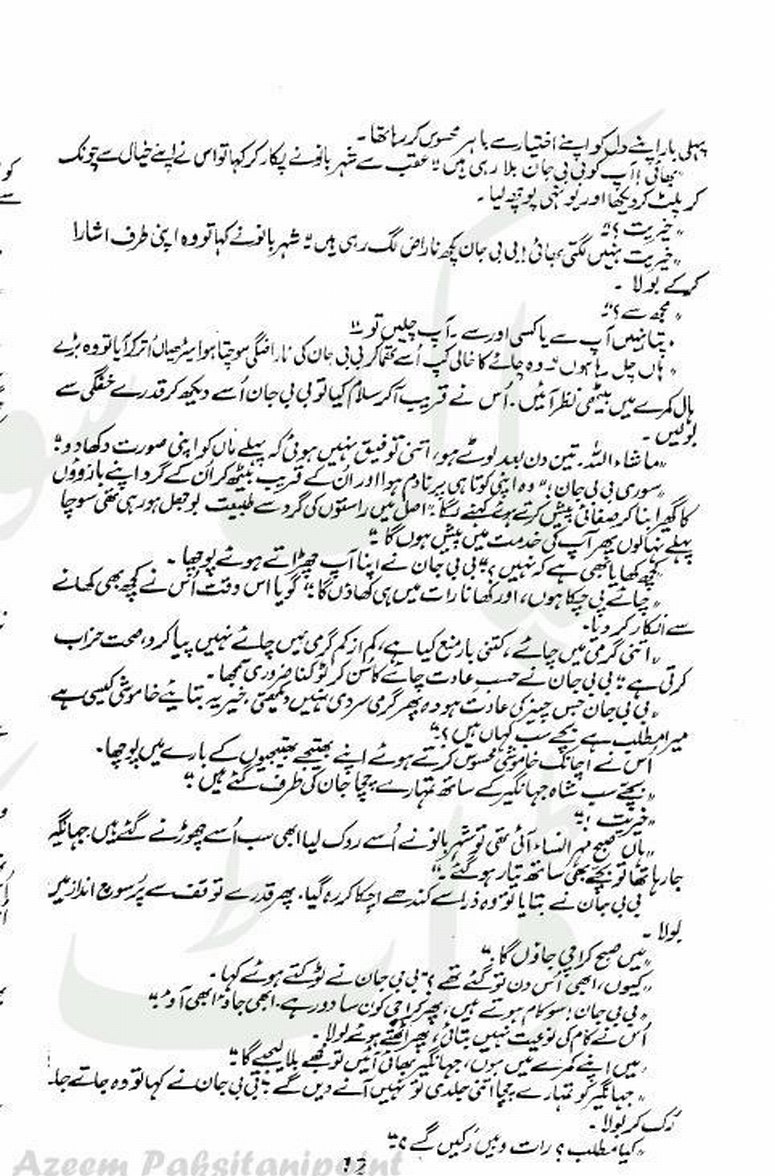 پہلی بار اپنے دل کو اپنے اختیار سے باہر محسوس کر رہا تھا۔
"بھائی! آپ کو بی بی جان بلا رہی ہیں" عقب سے شہر بانو نے پکار کر کہا تو اس نے اپنے خیال سے چونک
کر پلٹ کر دیکھا اور یونہی پوچھ لیا۔
"خیریت؟"
"خیریت نہیں لگتی، بھائی! بی بی جان کچھ ناراض لگ رہی ہیں" شہر بانو نے کہا تو وہ اپنی طرف اشارا
کرکے بولا۔
"مجھ سے؟"
"پتا نہیں آپ سے یا کسی اور سے۔ آپ چلیں تو"
"ہاں چل رہا ہوں" وہ چائے کا خالی کپ اُسے تھما کر بی بی جان کی ناراضگی سوچتا ہوا سیڑھیاں اُتر کر آیا تو وہ بڑے
ہال کمرے میں بیٹھی نظر آئیں۔ اُس نے قریب آکر سلام کیا تو بی بی جان اُسے دیکھ کر قدرے خفگی سے
بولیں۔
"ماشاء اللہ۔ تین دن بعد لوٹے ہو، اتنی توفیق نہیں ہوئی کہ پہلے ماں کو اپنی صورت دکھا دو"
"سوری بی بی جان!" وہ اپنی کوتاہی پر نادم ہوا اور اُن کے قریب بیٹھ کر اُن کے گرد اپنے بازوؤں
کا گھیرا بنا کر صفائی پیش کرتے ہوئے کہنے لگا "اصل میں راستوں کی گرد سے طبیعت بوجھل ہو رہی تھی سوچا
پہلے نہا لوں پھر آپ کی خدمت میں پیش ہوں گا"
"کچھ کھایا بھی ہے کہ نہیں؟" بی بی جان نے اپنا آپ چھڑاتے ہوئے پوچھا۔
"چائے پی چکا ہوں، اور کھانا رات میں ہی کھاؤں گا" گویا اس وقت اُس نے کچھ بھی کھانے
سے انکار کر دیا۔
"اتنی گرمی میں چائے، کتنی بار منع کیا ہے، کم از کم گرمی میں چائے نہیں پیا کرو، صحت خراب
کرتی ہے" بی بی جان نے حسبِ عادت چائے کا سُن کر ٹوکنا ضروری سمجھا۔
"بی بی جان جس چیز کی عادت ہو وہ پھر گرمی سردی نہیں دیکھتی، خیر یہ بتایئے خاموشی کیسی ہے
میرا مطلب ہے بچے سب کہاں ہیں؟"
اُس نے اچانک خاموشی محسوس کرتے ہوئے اپنے بھتیجے بھتیجیوں کے بارے میں پوچھا۔
"بچے سب شاہ جہانگیر کے ساتھ تمہارے چچا جان کی طرف گئے ہیں"
"خیریت!"
"ہاں صبح مہر النساء آئی تھی تو شہر بانو نے اُسے روک لیا ابھی سب اُسے چھوڑنے گئے ہیں، جہانگیر
جا رہا تھا تو بچے بھی ساتھ تیار ہو گئے"
بی بی جان نے بتایا تو وہ ذرا سے کندھے اچکا کر رہ گیا۔ پھر قدرے توقف سے پُر سوچ انداز میں
بولا۔
"میں صبح کراچی جاؤں گا"
"کیوں، ابھی اُس دن تو گئے تھے؟" بی بی جان نے ٹوکتے ہوئے کہا۔
"بی بی جان! سو کام ہوتے ہیں، پھر کراچی کون سا دور ہے۔ ابھی جاؤ ابھی آؤ"
اُس نے کام کی نوعیت نہیں بتائی، پھر اُٹھتے ہوئے بولا۔
"میں اپنے کمرے میں ہوں، جہانگیر بھائی آئیں تو مجھے بلا لیجیے گا"
"جہانگیر کو تمہارے چچا اتنی جلدی تو نہیں آنے دیں گے" بی بی جان نے کہا تو وہ جاتے جاتے
رُک کر بولا۔
"کیا مطلب؟ رات وہیں رُکیں گے؟"
12
Azeem Paksitanipoint